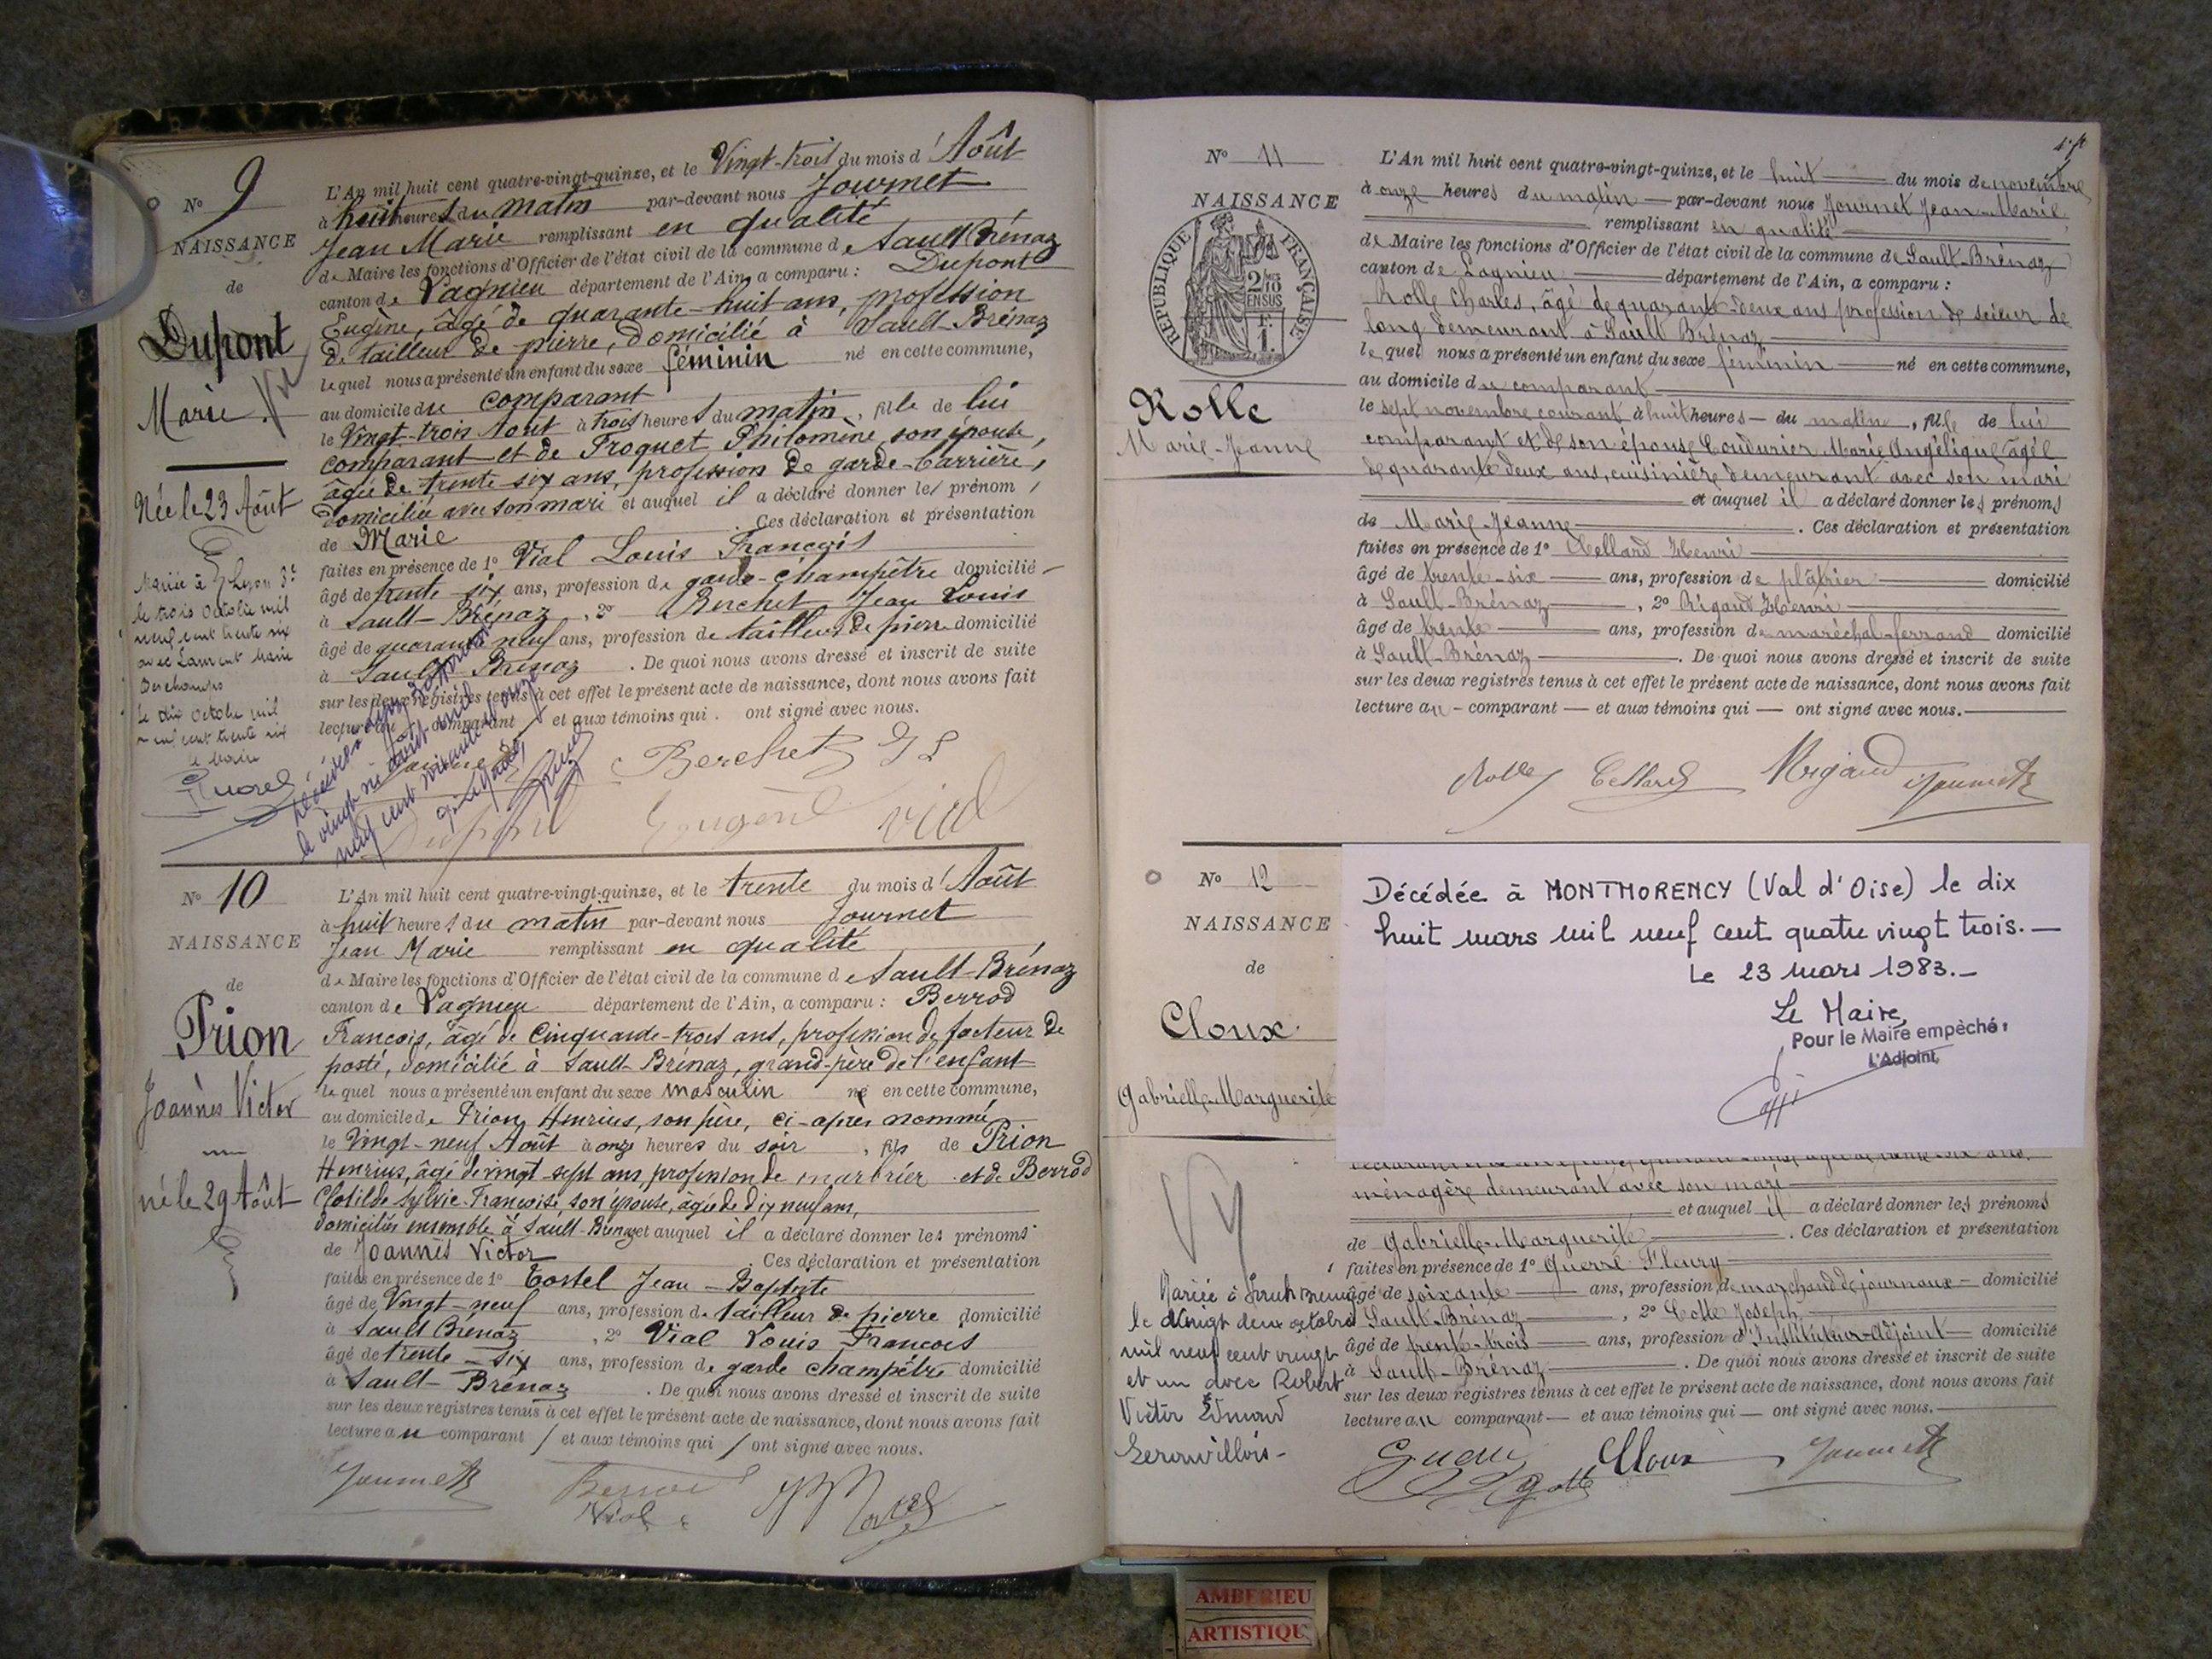 N° 9
NAISSANCE
de
Dupont
Marie
Née le 23 Août
Mariée à Lyon 3e
le trois Octobre mil
neuf cent trente six
avec Laurent Marie
Deschamps
Le dix Octobre mil
neuf cent trente six
le Maire
L'An mil huit cent quatre-vingt-quinze, et le Vingt-trois du mois d'Août
à huit heures du matin par-devant nous Journet
Jean Marie remplissant en qualité
de Maire les fonctions d'Officier de l'état civil de la commune de Sault-Brénaz
canton de Lagnieu département de l'Ain, a comparu : Dupont
Eugène, âgé de quarante-huit ans, profession
de tailleur de pierre, domicilié à Sault-Brénaz
lequel nous a présenté un enfant du sexe féminin né en cette commune,
au domicile du comparant
le Vingt-trois Aout à trois heures du matin, fille de lui
comparant et de Troquet Philomène, son épouse,
âgée de trente six ans, profession de garde-barrière,
domiciliée avec son mari et auquel il a déclaré donner le prénom
de Marie . Ces déclaration et présentation
faites en présence de 1° Vial Louis François
âgé de trente six ans, profession de garde-champêtre domicilié
à Sault-Brénaz , 2° Berchet Jean Louis
âgé de quarante neuf ans, profession de tailleur de pierre domicilié
à Sault-Brénaz . De quoi nous avons dressé et inscrit de suite
sur les deux registres tenus à cet effet le présent acte de naissance, dont nous avons fait
lecture au comparant et aux témoins qui ont signé avec nous.
Berchet J L
Dupont Eugène Vial
N° 10
NAISSANCE
de
Prion
Joannès Victor
né le 29 Août
L'An mil huit cent quatre-vingt-quinze, et le trente du mois d'Août
à huit heures du matin par-devant nous Journet
Jean Marie remplissant en qualité
de Maire les fonctions d'Officier de l'état civil de la commune de Sault-Brénaz
canton de Lagnieu département de l'Ain, a comparu : Berrod
François, âgé de Cinquante-trois ans, profession de facteur de
poste, domicilié à Sault-Brénaz, grand-père de l'enfant
lequel nous a présenté un enfant du sexe masculin né en cette commune,
au domicile de Prion Henrius, son père, ci-après nommé
le Vingt-neuf Aout à onze heures du soir , fils de Prion
Henrius, âgé de vingt-sept ans, profession de marbrier et de Berrod
Clotilde Sylvie Françoise, son épouse, âgée de dix neuf ans,
domiciliés ensemble à Sault-Brénaz et auquel il a déclaré donner les prénoms
de Joannès Victor Ces déclaration et présentation
faites en présence de 1° Tostel Jean-Baptiste
âgé de Vingt-neuf ans, profession de tailleur de pierre domicilié
à Sault Brénaz , 2° Vial Louis François
âgé de trente-six ans, profession de garde champêtre domicilié
à Sault-Brénaz . De quoi nous avons dressé et inscrit de suite
sur les deux registres tenus à cet effet le présent acte de naissance, dont nous avons fait
lecture au comparant et aux témoins qui ont signé avec nous.
Journet Berrod
Vial
N° 11
NAISSANCE
RÉPUBLIQUE FRANÇAISE
2/10 EN SUS
Rolle
Marie-Jeanne
L'An mil huit cent quatre-vingt-quinze, et le huit du mois de novembre
à onze heures du matin par-devant nous Journet Jean-Marie
remplissant en qualité
de Maire les fonctions d'Officier de l'état civil de la commune de Sault-Brénaz
canton de Lagnieu département de l'Ain, a comparu :
Rolle Charles, âgé de quarante-deux ans profession de scieur de
long demeurant à Sault Brénaz
lequel nous a présenté un enfant du sexe féminin né en cette commune,
au domicile du comparant
le sept novembre courant à huit heures du matin, fille de lui
comparant et de son épouse Coudurier Marie Angélique âgée
de quarante deux ans, cuisinière demeurant avec son mari
et auquel il a déclaré donner les prénoms
de Marie Jeanne . Ces déclaration et présentation
faites en présence de 1° Cellard Henri
âgé de trente-six ans, profession de plâtrier domicilié
à Sault-Brénaz , 2° Rigaud Henri
âgé de trente ans, profession de maréchal-ferrand domicilié
à Sault-Brénaz . De quoi nous avons dressé et inscrit de suite
sur les deux registres tenus à cet effet le présent acte de naissance, dont nous avons fait
lecture au comparant et aux témoins qui ont signé avec nous.
Rolle Cellard Rigaud Journet
N° 12
NAISSANCE
de
Cloux
Gabrielle-Marguerite
Mariée à Sault Brénaz
le vingt deux octobre
mil neuf cent vingt
et un avec Robert
Victor Edmond
Décédée à MONTMORENCY (Val d'Oise) le dix
huit mars mil neuf cent quatre vingt trois.
Le 23 mars 1983.
Le Maire,
Pour le Maire empêché,
L'Adjoint,
ménagère demeurant avec son mari
et auquel il a déclaré donner les prénoms
de Gabrielle-Marguerite . Ces déclaration et présentation
faites en présence de 1° Guerre Fleury
âgé de soixante ans, profession de marchand de journaux domicilié
à Sault-Brénaz , 2° Colle Joseph
âgé de trente-trois ans, profession d'Instituteur-Adjoint domicilié
à Sault-Brénaz . De quoi nous avons dressé et inscrit de suite
sur les deux registres tenus à cet effet le présent acte de naissance, dont nous avons fait
lecture au comparant et aux témoins qui ont signé avec nous.
Cloux Journet
AMBERIEU
ARTISTIQU